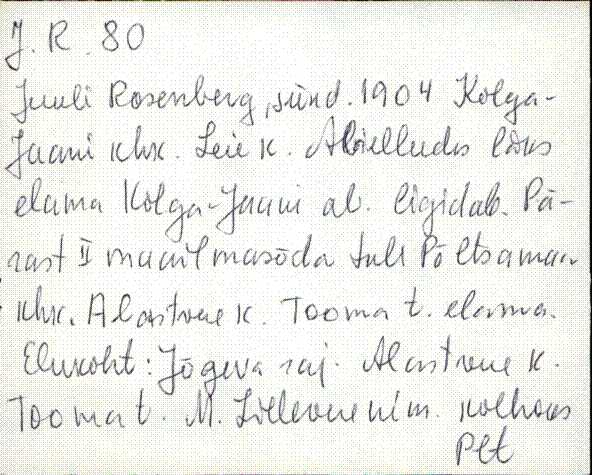 J. R. 80
Juuli Rosenberg, sünd. 1904 Kolga-
Jaani khk. Leie k. Abielludes läks
elama Kolga-Jaani al. ligidale. Pä-
rast II maailmasõda tuli Põltsamaa
khk. Alastvere k. Tooma t. elama.
Elukoht: Jõgeva raj. Alastvere k.
Tooma t. M. Lillevere nim. kolhoos
Plt